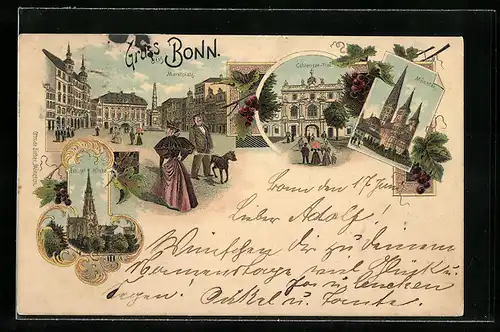 Gruss aus BONN.
Marktplatz
Coblenzer-Thor
Münster
Bonn den 17 Juni
Lieber Adolf!
Wünschen dir zu deinem
Namenstage viel Glück u.
Segen! Onkel u. Tante.